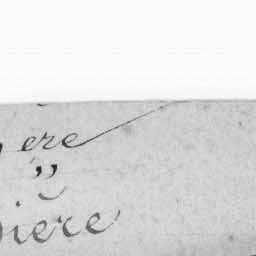 ere
”
ière